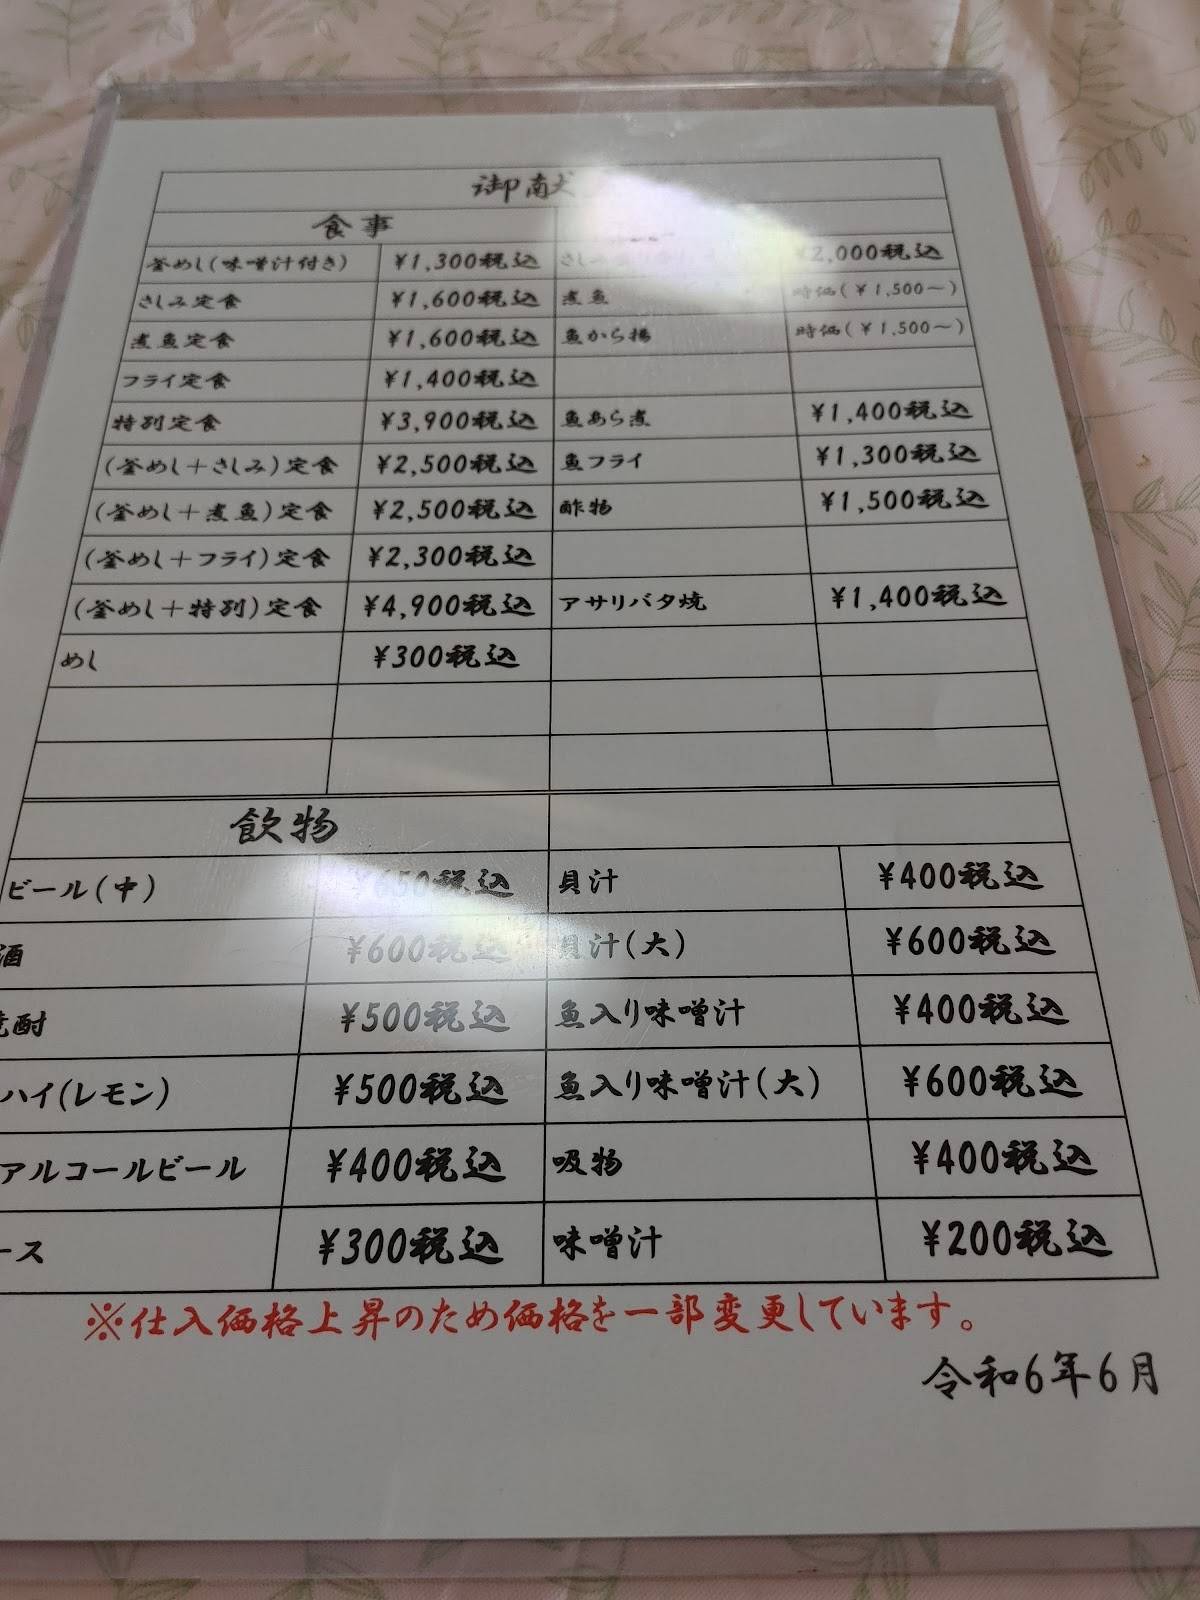 御献
食事
釜めし(味噌汁付き) ¥1,300税込 さしみ ¥2,000税込
さしみ定食 ¥1,600税込 煮魚 時価(¥1,500～)
煮魚定食 ¥1,600税込 魚から揚 時価(¥1,500～)
フライ定食 ¥1,400税込
特別定食 ¥3,900税込 魚あら煮 ¥1,400税込
(釜めし+さしみ)定食 ¥2,500税込 魚フライ ¥1,300税込
(釜めし+煮魚)定食 ¥2,500税込 酢物 ¥1,500税込
(釜めし+フライ)定食 ¥2,300税込
(釜めし+特別)定食 ¥4,900税込 アサリバタ焼 ¥1,400税込
めし ¥300税込
飲物
ビール(中) ¥650税込 貝汁 ¥400税込
酒 ¥600税込 貝汁(大) ¥600税込
焼酎 ¥500税込 魚入り味噌汁 ¥400税込
ハイ(レモン) ¥500税込 魚入り味噌汁(大) ¥600税込
アルコールビール ¥400税込 吸物 ¥400税込
ース ¥300税込 味噌汁 ¥200税込
※仕入価格上昇のため価格を一部変更しています。
令和6年6月